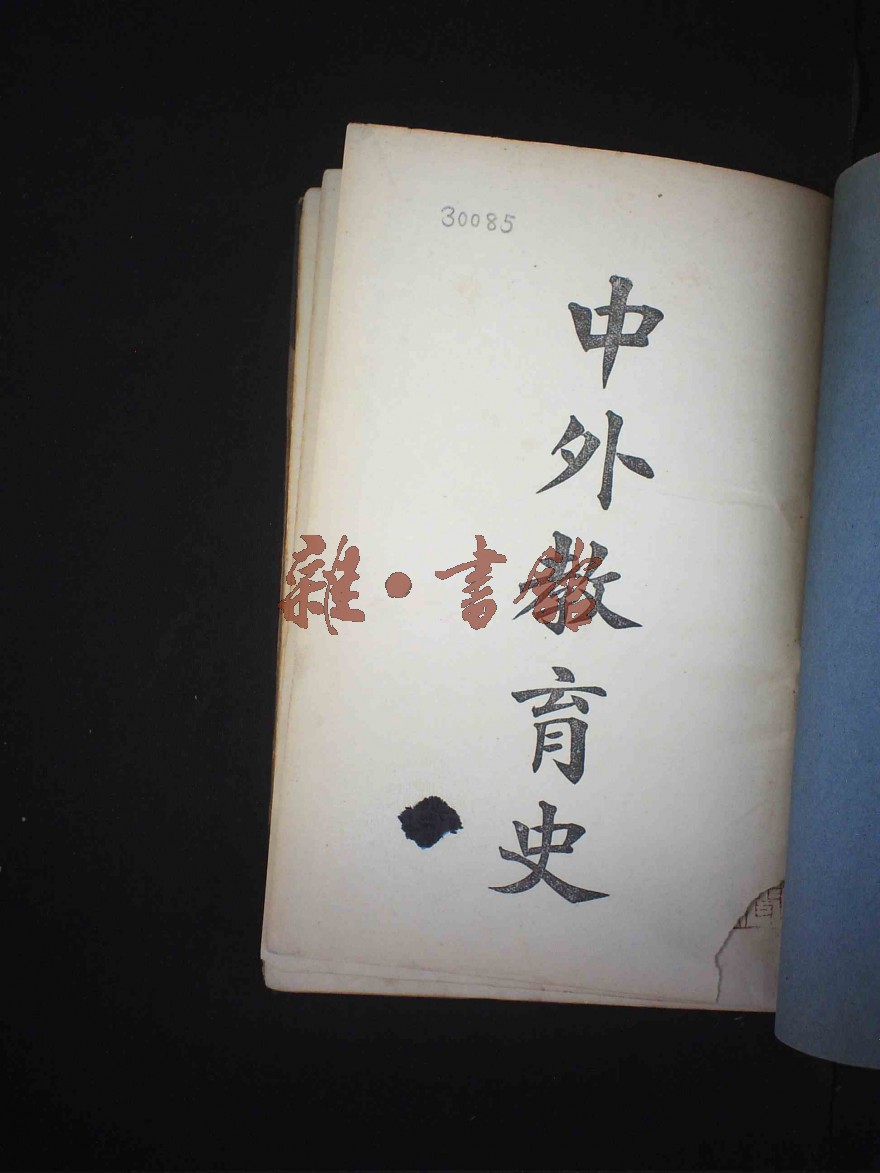 30085
中外教育史
雜·書館